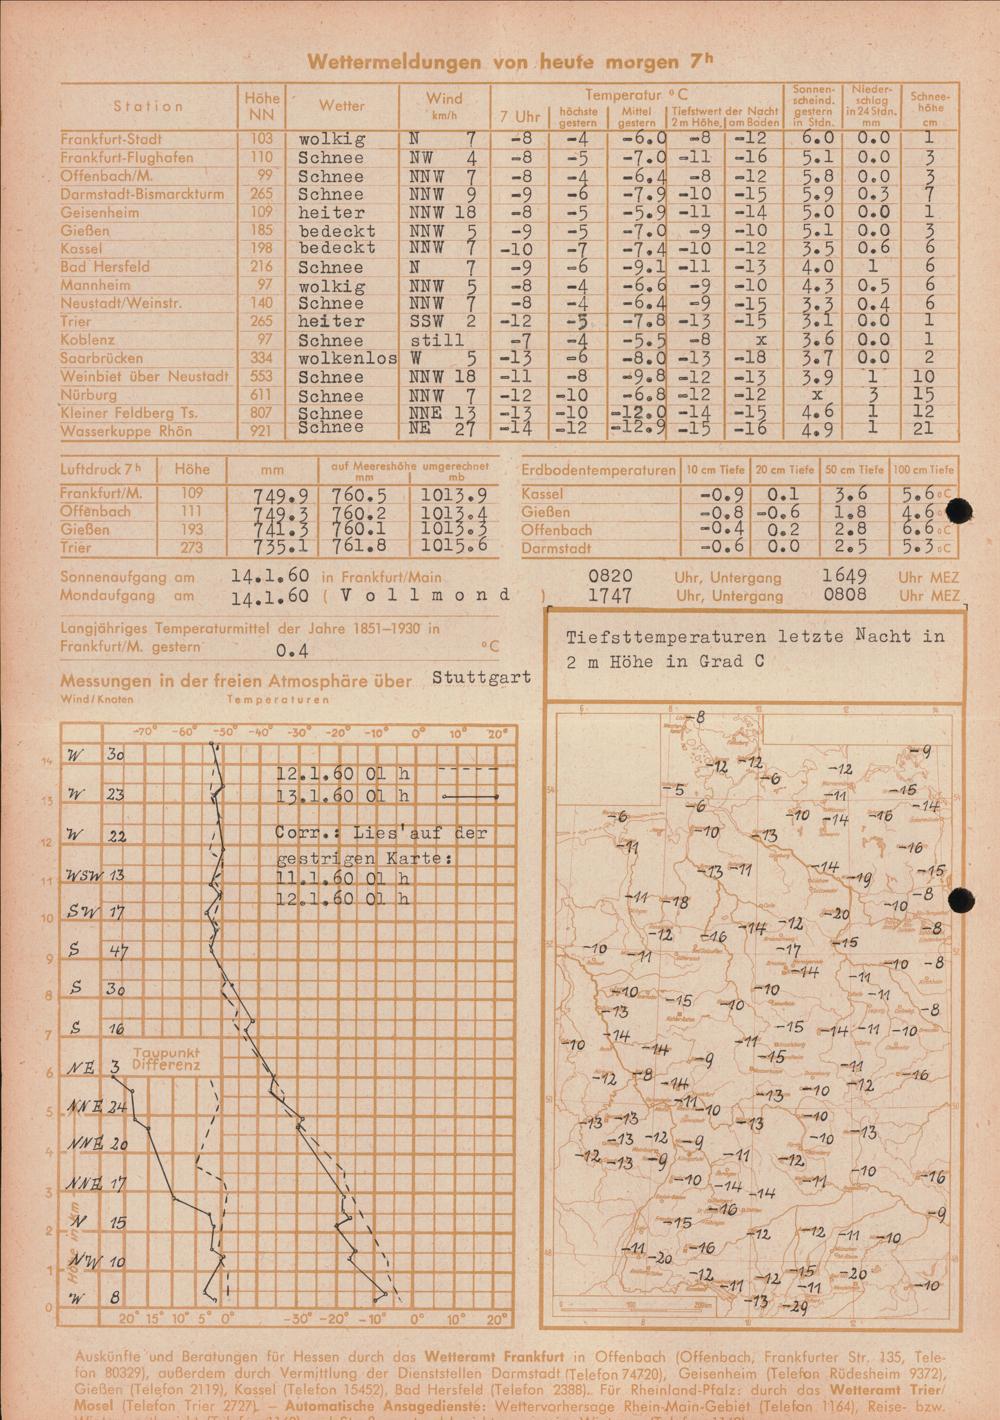 Wettermeldungen von heute morgen 7h
Station Höhe NN Wetter Wind km/h Temperatur °C Sonnenscheind. gestern in Stdn. Niederschlag in 24 Stdn. mm Schneehöhe cm
7 Uhr höchste gestern Mittel gestern Tiefstwert der Nacht 2 m Höhe, am Boden
Frankfurt-Stadt 103 wolkig N 7 -8 -4 -6.0 -8 -12 6.0 0.0 1
Frankfurt-Flughafen 110 Schnee NW 4 -8 -5 -7.0 -11 -16 5.1 0.0 3
Offenbach/M. 99 Schnee NNW 7 -8 -4 -6.4 -8 -12 5.8 0.0 3
Darmstadt-Bismarckturm 265 Schnee NNW 9 -9 -6 -7.9 -10 -15 5.9 0.3 7
Geisenheim 109 heiter NNW 18 -8 -5 -5.9 -11 -14 5.0 0.0 1
Gießen 185 bedeckt NNW 5 -9 -5 -7.0 -9 -10 5.1 0.0 3
Kassel 198 bedeckt NNW 7 -10 -7 -7.4 -10 -12 3.5 0.6 6
Bad Hersfeld 216 Schnee N 7 -9 -6 -9.1 -11 -13 4.0 1 6
Mannheim 97 wolkig NNW 5 -8 -4 -6.6 -9 -10 4.3 0.5 6
Neustadt/Weinstr. 140 Schnee NNW 7 -8 -4 -6.4 -9 -15 3.3 0.4 6
Trier 265 heiter SSW 2 -12 -5 -7.8 -13 -15 3.1 0.0 1
Koblenz 97 Schnee still -7 -4 -5.5 -8 x 3.6 0.0 1
Saarbrücken 334 wolkenlos W 5 -13 -6 -8.0 -13 -18 3.7 0.0 2
Weinbiet über Neustadt 553 Schnee NNW 18 -11 -8 -9.8 -12 -13 3.9 1 10
Nürburg 611 Schnee NNW 7 -12 -10 -6.8 -12 -12 x 3 15
Kleiner Feldberg Ts. 807 Schnee NNE 13 -13 -10 -12.0 -14 -15 4.6 1 12
Wasserkuppe Rhön 921 Schnee NE 27 -14 -12 -12.9 -15 -16 4.9 1 21
Luftdruck 7h Höhe mm auf Meereshöhe umgerechnet mm mb
Frankfurt/M. 109 749.9 760.5 1013.9
Offenbach 111 749.3 760.2 1013.4
Gießen 193 741.3 760.1 1013.3
Trier 273 735.1 761.8 1015.6
Erdbodentemperaturen 10 cm Tiefe 20 cm Tiefe 50 cm Tiefe 100 cm Tiefe
Kassel -0.9 0.1 3.6 5.6 °C
Gießen -0.8 -0.6 1.8 4.6
Offenbach -0.4 0.2 2.8 6.6 °C
Darmstadt -0.6 0.0 2.5 5.3 °C
Sonnenaufgang am 14.1.60 in Frankfurt/Main 0820 Uhr, Untergang 1649 Uhr MEZ
Mondaufgang am 14.1.60 ( Vollmond ) 1747 Uhr, Untergang 0808 Uhr MEZ
Langjähriges Temperaturmittel der Jahre 1851–1930 in
Frankfurt/M. gestern 0.4 °C
Messungen in der freien Atmosphäre über Stuttgart
Wind/Knoten Temperaturen
-70° -60° -50° -40° -30° -20° -10° 0° 10° 20°
14 W 30
13 W 23
12 W 22
11 WSW 13
10 SW 17
9 S 47
8 S 30
7 S 16
6 NE 3
5 NNE 24
4 NNE 20
3 NNE 17
2 N 15
1 NW 10
0 W 8
Höhe in km
12.1.60 01 h
13.1.60 01 h
Corr.: Lies' auf der
gestrigen Karte:
11.1.60 01 h
12.1.60 01 h
Taupunkt
Differenz
20° 15° 10° 5° 0° -30° -20° -10° 0° 10° 20°
Tiefsttemperaturen letzte Nacht in
2 m Höhe in Grad C
-8
-9
-12 -12 -12
-6
-5 -15
-11
-6 -14
-6 -10 -14 -16
-10 -13
-11 -16
-13 -11 -14 -19 -15
-11 -18 -10 -8
-20
-12 -16 -14 -12 -8
-10 -11 -17 -15
-14 -10 -8
-11
-10 -15 -10 -10 -11
-13 -8
-14 -15 -14 -11 -10
-10 -14 -11
-9 -15 -11
-12 -8 -14 -12 -16
-11 -10 -13 -10
-13 -13 -13 -10
-13 -12 -9 -10 -13
-12 -13 -9 -11 -12
-10 -14 -14 -11 -10 -16
-16 -9
-15 -12 -12 -11 -10
-11 -20 -16
-12 -11 -12 -15 -20 -10
-11
-13 -29
Auskünfte und Beratungen für Hessen durch das Wetteramt Frankfurt in Offenbach (Offenbach, Frankfurter Str. 135, Tele-
fon 80329), außerdem durch Vermittlung der Dienststellen Darmstadt (Telefon 74720), Geisenheim (Telefon Rüdesheim 9372),
Gießen (Telefon 2119), Kassel (Telefon 15452), Bad Hersfeld (Telefon 2388). Für Rheinland-Pfalz: durch das Wetteramt Trier/
Mosel (Telefon Trier 2727). – Automatische Ansagedienste: Wettervorhersage Rhein-Main-Gebiet (Telefon 1164), Reise- bzw.